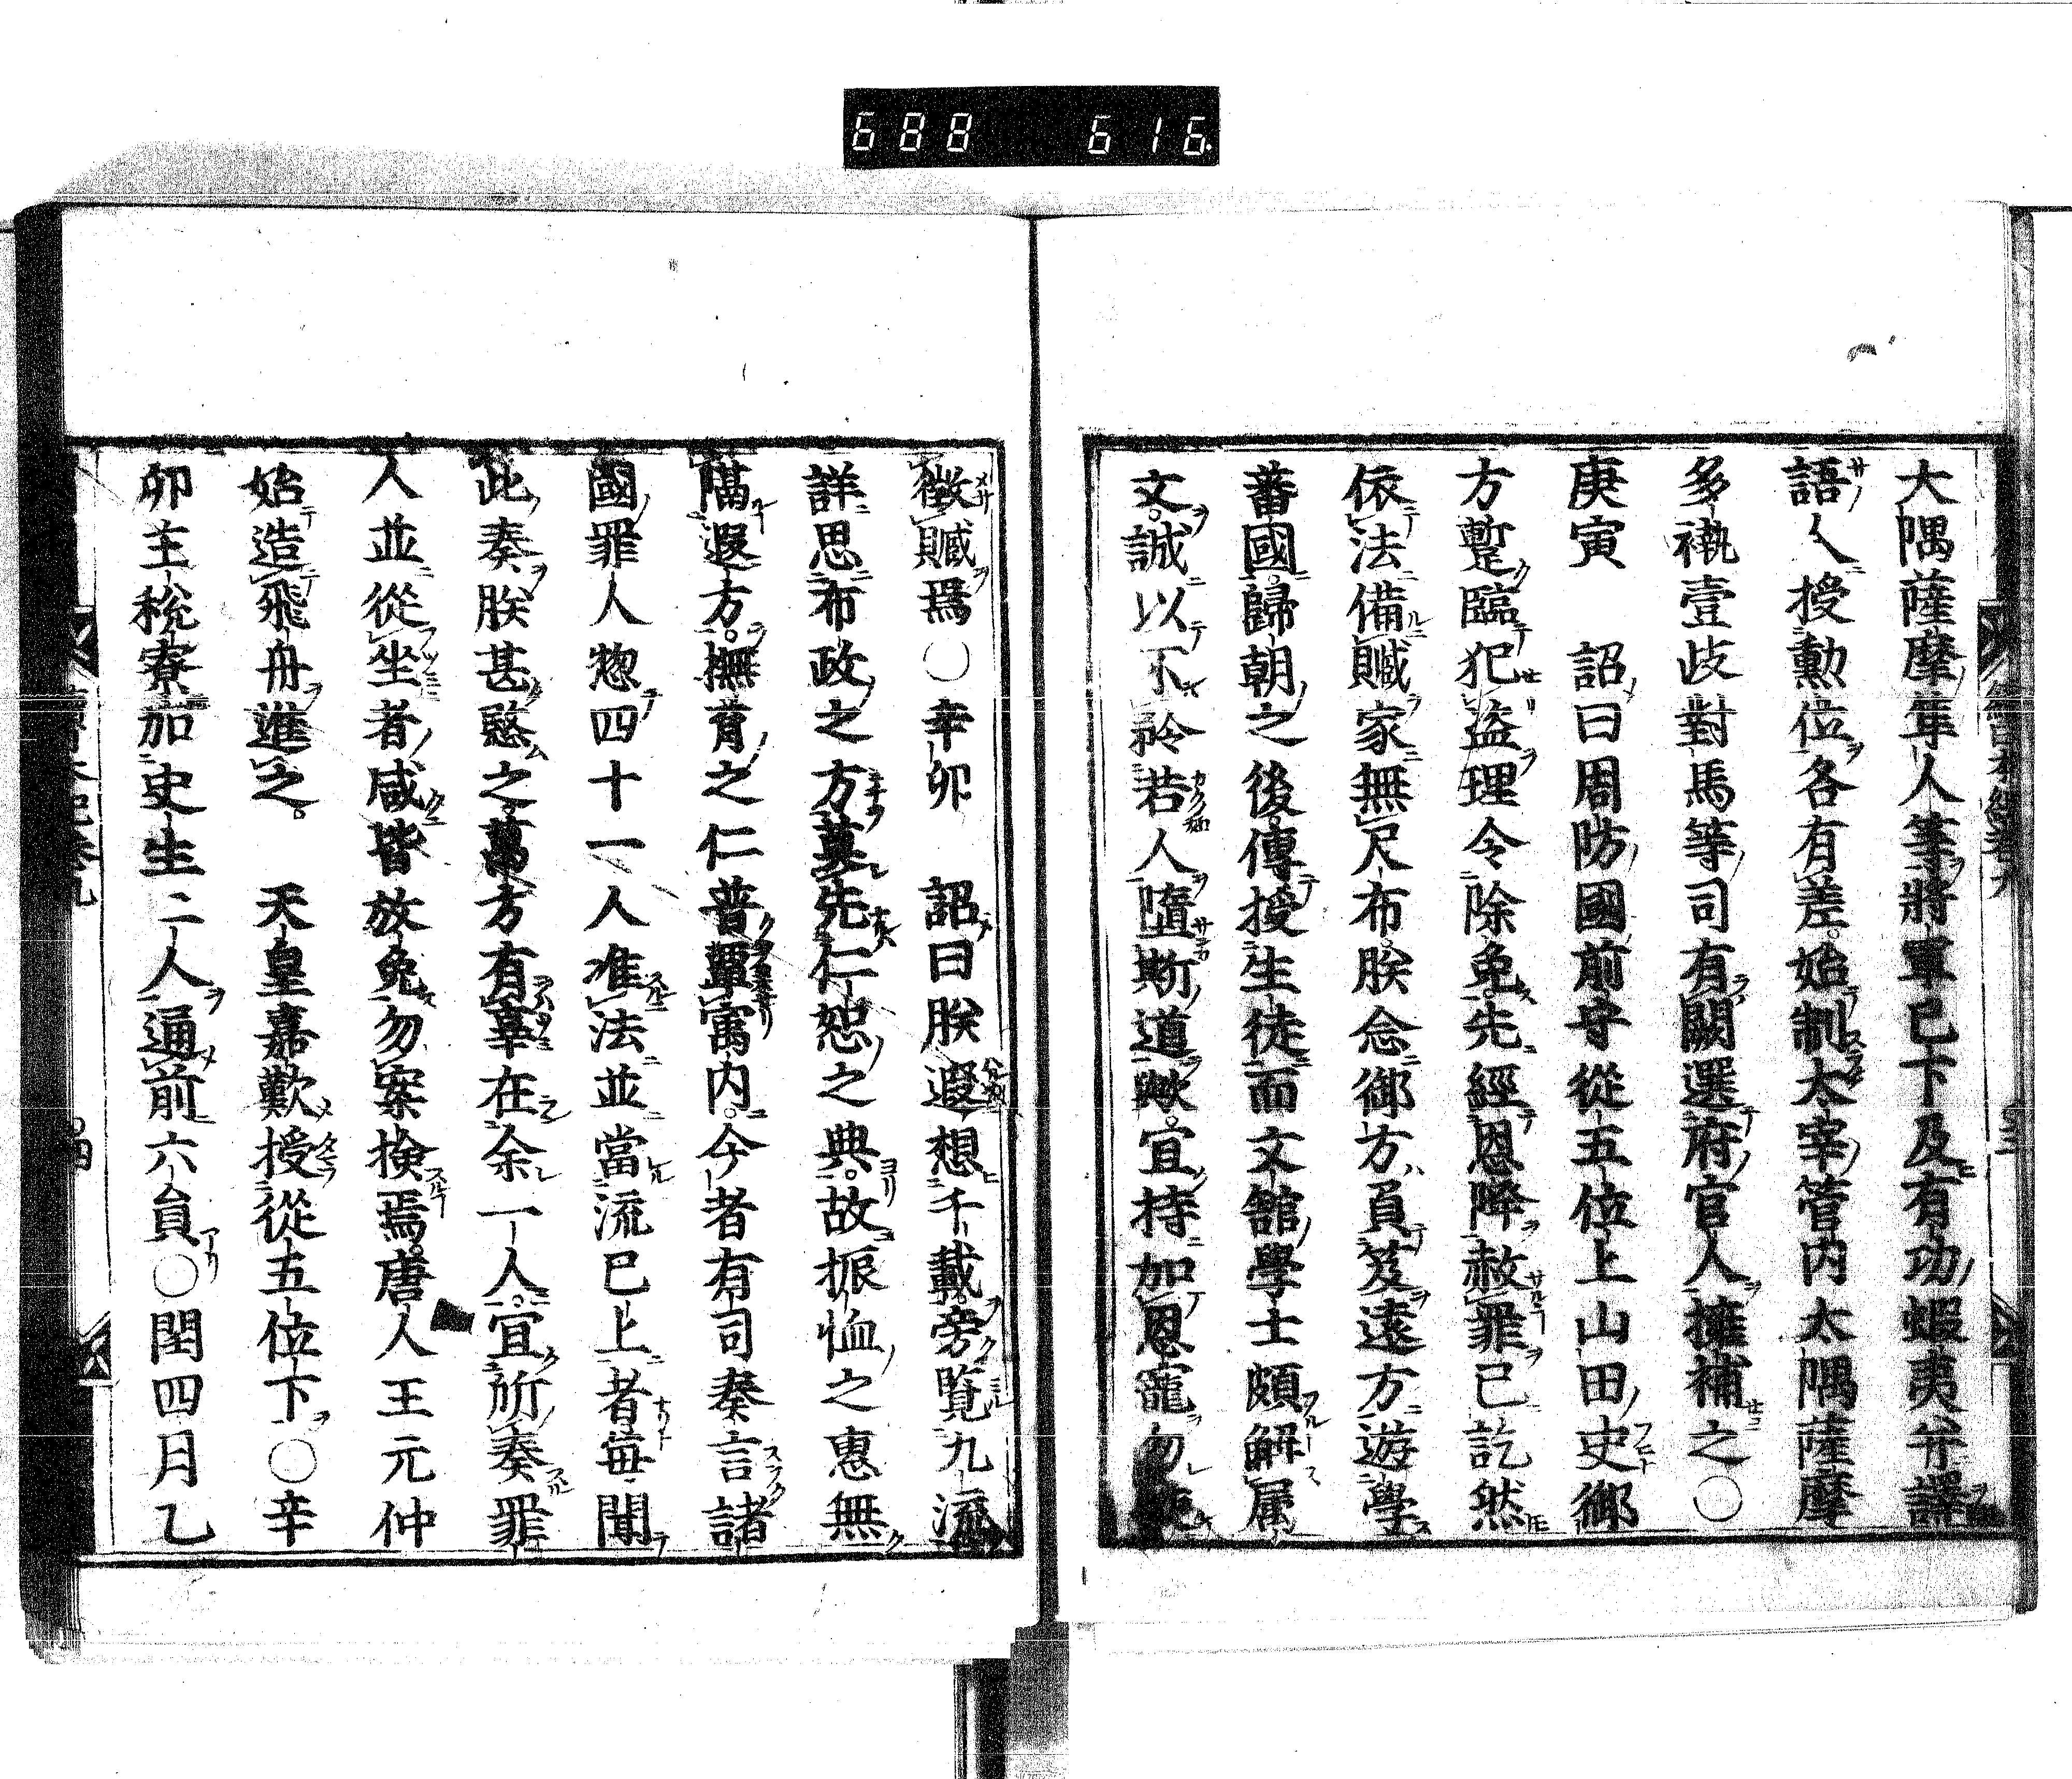 688 616
大隅薩摩隼人等將軍已下及有功蝦夷并譯
語人授勳位各有差始制太宰管内大隅薩摩
多褹壹岐對馬等司有闕選府官人擬補之〇
庚寅 詔曰周防國前守從五位上山田史御
方蹔臨犯盗理令除免先經恩降赦罪已訖然
依法備贓家無尺布朕念御方負笈遠方遊學
蕃國歸朝之後傳授生徒而文舘學士頗解属
文誠以不矜若人墮斯道歟宜持加恩寵勿使
徴贓焉〇辛卯 詔曰朕遐想千載旁覧九流
詳思布政之方莫先仁恕之典故振恤之惠無
隔遐方撫育之仁普覃㝢内今者有司奏言諸
國罪人惣四十一人准法並當流已上者毎聞
此奏朕甚愍之萬方有辜在余一人宜所奏罪
人並從坐者咸皆放免勿案検焉唐人王元仲
始造飛舟進之 天皇嘉歎授從五位下〇辛
卯主税寮加史生二人通前六員〇閏四月乙
四